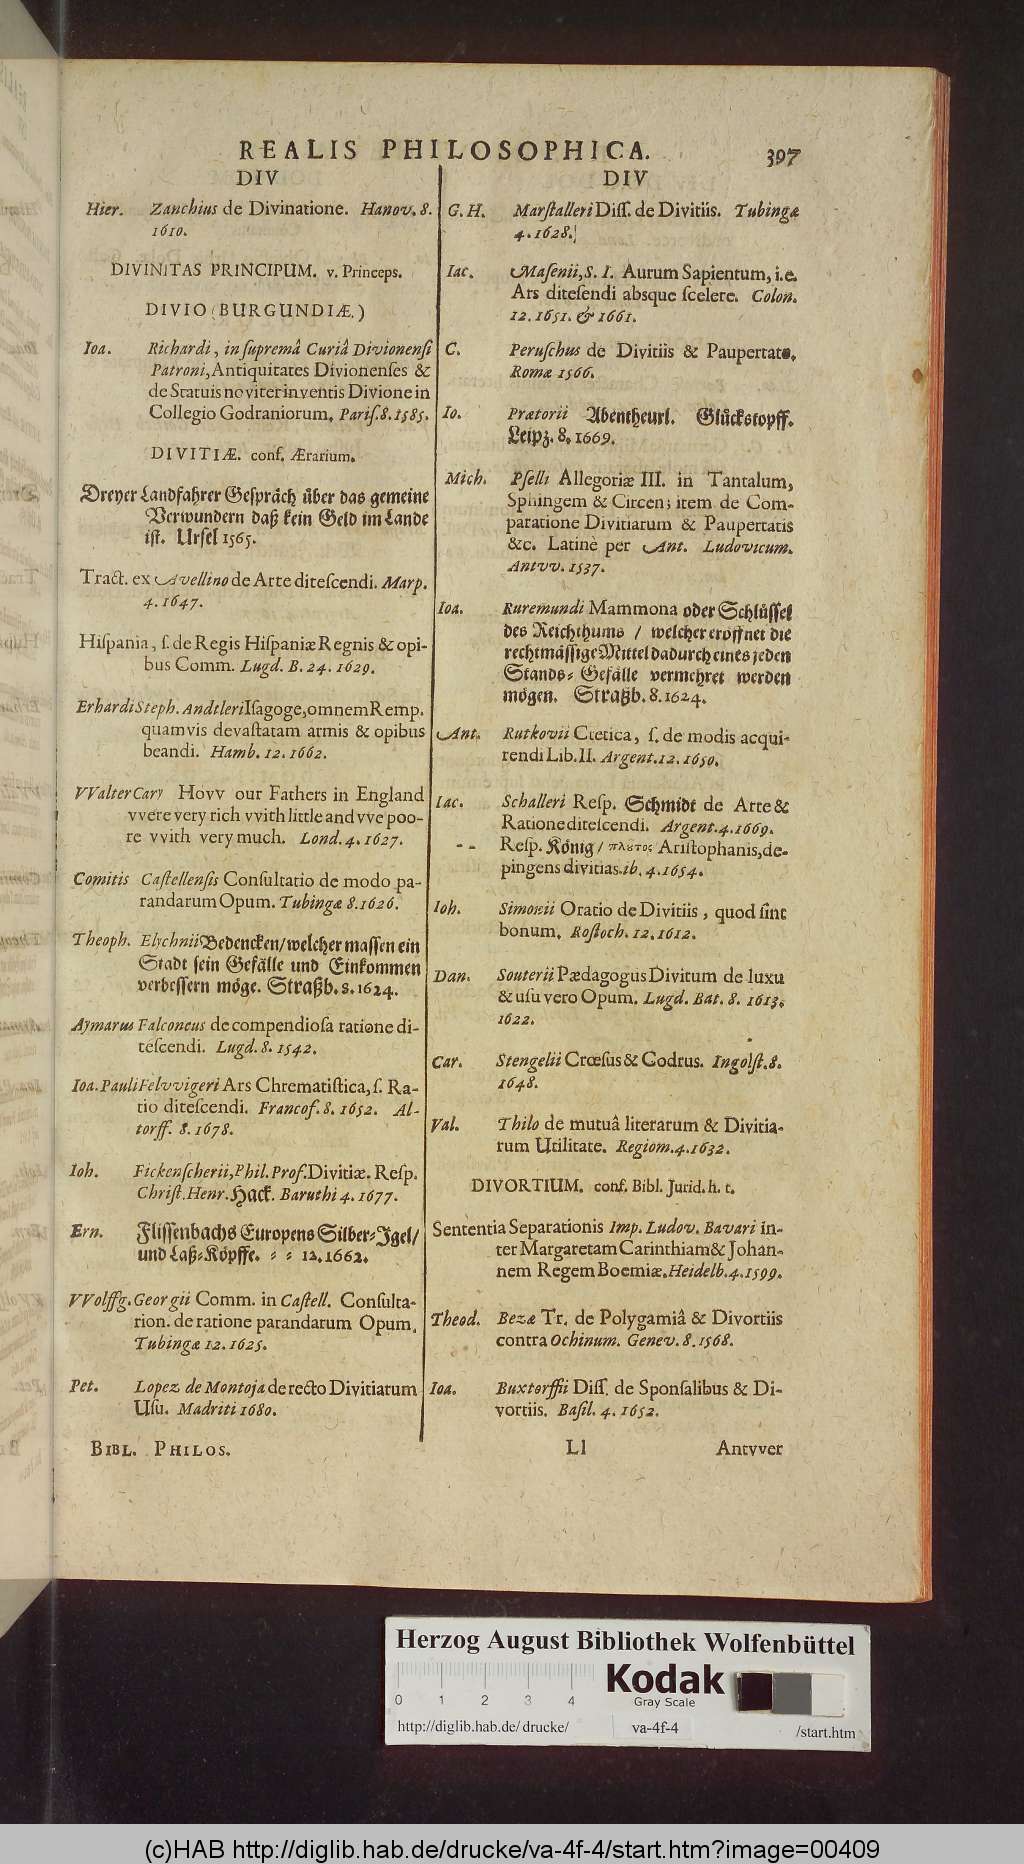 REALIS PHILOSOPHICA. 397
DIV
Hier. Zanchius de Divinatione. Hanov. 8.
1610.
DIVINITAS PRINCIPUM. v. Princeps.
DIVIO (BURGUNDIÆ.)
Ioa. Richardi, in supremâ Curiâ Divionensi
Patroni, Antiquitates Divionenses &
de Statuis noviter inventis Divione in
Collegio Godraniorum. Paris. 8. 1585.
DIVITIÆ. conf. Ærarium.
Dreyer Landfahrer Gespräch über das gemeine
Verwundern daß kein Geld im Lande
ist. Ursel 1565.
Tract. ex Avellino de Arte ditescendi. Marp.
4. 1647.
Hispania, s. de Regis Hispaniæ Regnis & opi-
bus Comm. Lugd. B. 24. 1629.
Erhardi Steph. Andtleri Isagoge, omnem Remp.
quamvis devastatam armis & opibus
beandi. Hamb. 12. 1662.
VValter Cary Hovv our Fathers in England
vvere very rich vvith little and vve poo-
re vvith very much. Lond. 4. 1627.
Comitis Castellensis Consultatio de modo pa-
randarum Opum. Tubingæ 8. 1626.
Theoph. Elychnii Bedencken/ welcher massen ein
Stadt sein Gefälle und Einkommen
verbessern möge. Straßb. 8. 1624.
Aymarus Falconeus de compendiosa ratione di-
tescendi. Lugd. 8. 1542.
Ioa. Pauli Felvvigeri Ars Chrematistica, s. Ra-
tio ditescendi. Francof. 8. 1652. Al-
torff. 8. 1678.
Ioh. Fickenscherii, Phil. Prof. Divitiæ. Resp.
Christ. Henr. Hack. Baruthi 4. 1677.
Ern. Flissenbachs Europens Silber-Igel/
und Laß-Köpffe. - - 12. 1662.
VVolffg. Georgii Comm. in Castell. Consulta-
rion. de ratione parandarum Opum.
Tubingæ 12. 1625.
Pet. Lopez de Montoja de recto Divitiarum
Usu. Madriti 1680.
DIV
G. H. Marstalleri Diss. de Divitiis. Tubingæ
4. 1628.
Iac. Masenii, S. I. Aurum Sapientum, i.e.
Ars ditesendi absque scelere. Colon.
12. 1651. & 1661.
C. Peruschus de Divitiis & Paupertate.
Romæ 1566.
Io. Prætorii Abentheurl. Glückstopff.
Leipz. 8. 1669.
Mich. Pselli Allegoriæ III. in Tantalum,
Sphingem & Circen; item de Com-
paratione Divitiarum & Paupertatis
&c. Latinè per Ant. Ludovicum.
Antvv. 1537.
Ioa. Ruremundi Mammona oder Schlüssel
des Reichthums / welcher eröffnet die
rechtmässige Mittel dadurch eines jeden
Stands- Gefälle vermehret werden
mögen. Straßb. 8. 1624.
Ant. Rutkovii Ctetica, s. de modis acqui-
rendi Lib. II. Argent. 12. 1650.
Iac. Schalleri Resp. Schmidt de Arte &
Ratione ditescendi. Argent. 4. 1669.
- - Resp. König/ πλοῦτος Aristophanis, de-
pingens divitias. ib. 4. 1654.
Ioh. Simonii Oratio de Divitiis, quod sint
bonum. Rostoch. 12. 1612.
Dan. Souterii Pædagogus Divitum de luxu
& usu vero Opum. Lugd. Bat. 8. 1613.
1622.
Car. Stengelii Crœsus & Codrus. Ingolst. 8.
1648.
Val. Thilo de mutuâ literarum & Divitia-
rum Utilitate. Regiom. 4. 1632.
DIVORTIUM. conf. Bibl. Jurid. h. t.
Sententia Separationis Imp. Ludov. Bavari in-
ter Margaretam Carinthiam & Johan-
nem Regem Boemiæ. Heidelb. 4. 1599.
Theod. Bezæ Tr. de Polygamiâ & Divortiis
contra Ochinum. Genev. 8. 1568.
Ioa. Buxtorffii Diss. de Sponsalibus & Di-
vortiis. Basil. 4. 1652.
BIBL. PHILOS. Ll Antvver
Herzog August Bibliothek Wolfenbüttel
0 1 2 3 4
Kodak
Gray Scale
http://diglib.hab.de/drucke/ va-4f-4 /start.htm
(c)HAB http://diglib.hab.de/drucke/va-4f-4/start.htm?image=00409